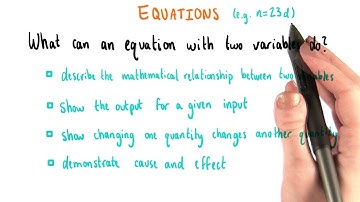 EQUATIONS (e.g. n=23d)
What can an equation with two variables do?
describe the mathematical relationship between two variables
show the output for a given input
show changing one quantity changes another quantity
demonstrate cause and effect